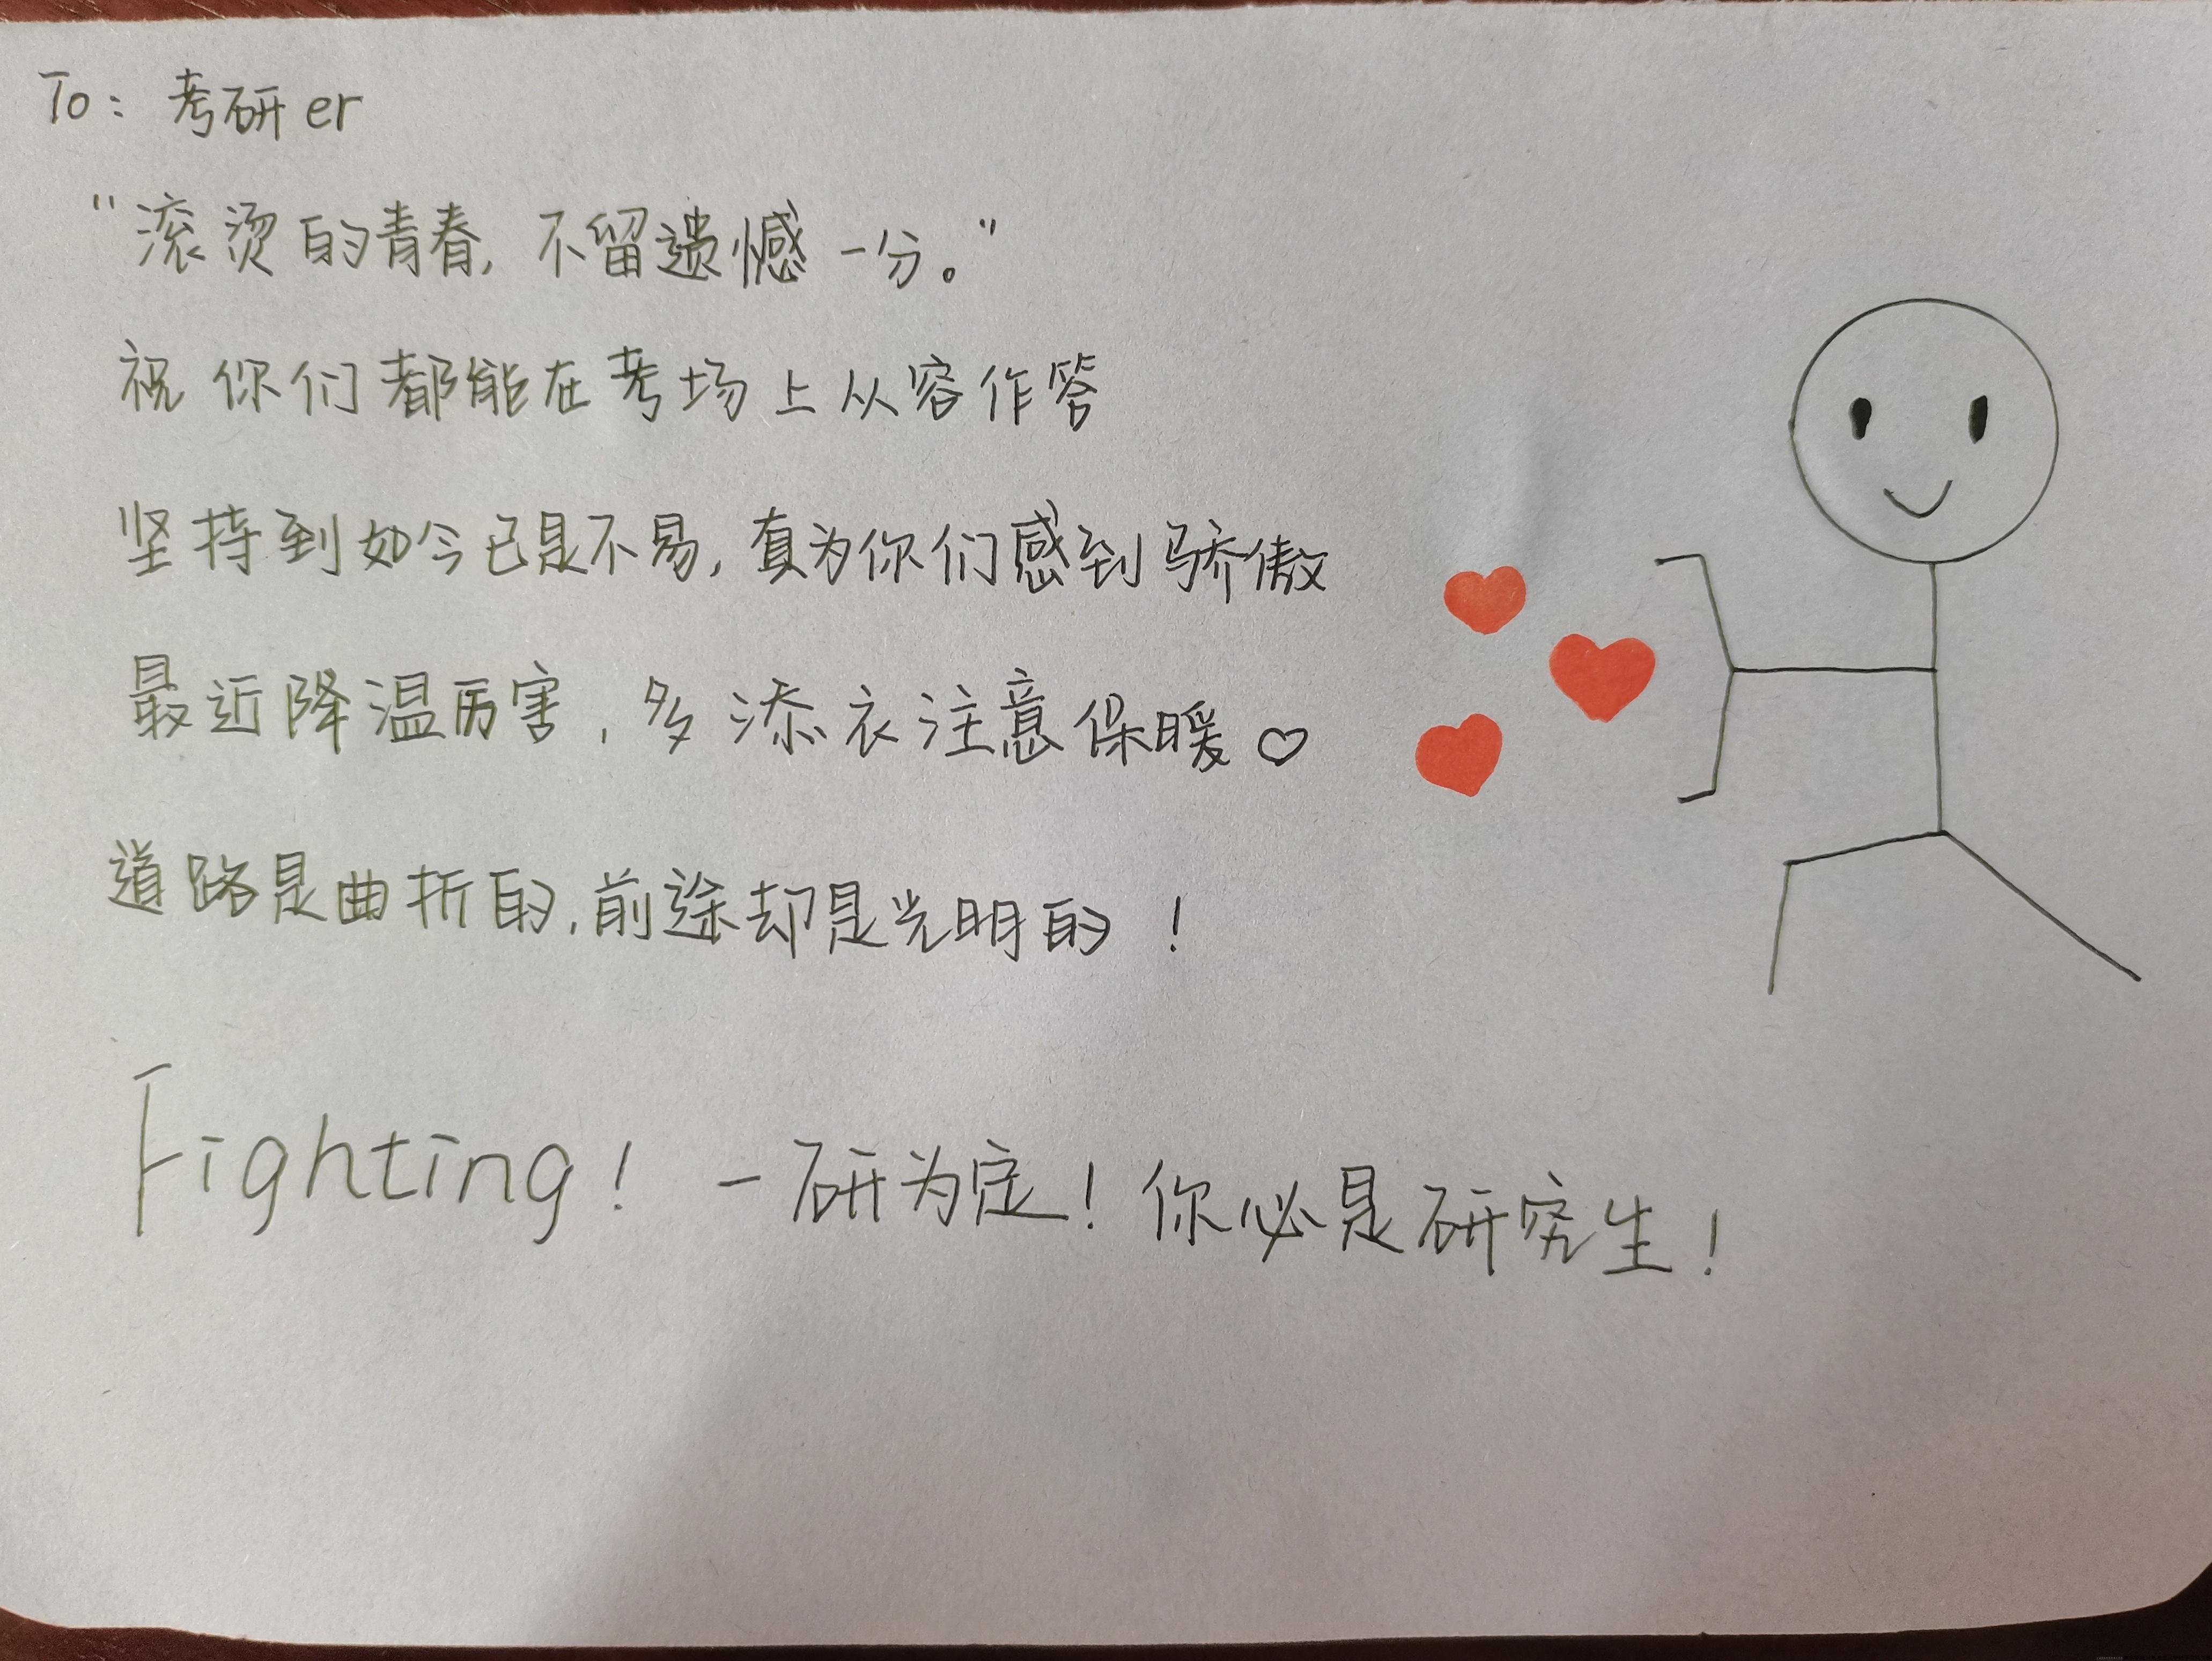 To: 考研er
"滚烫的青春,不留遗憾一分。"
祝你们都能在考场上从容作答
坚持到如今已是不易,真为你们感到骄傲
最近降温厉害,多添衣注意保暖♡
道路是曲折的,前途却是光明的!
Fighting! 一研为定!你必是研究生!